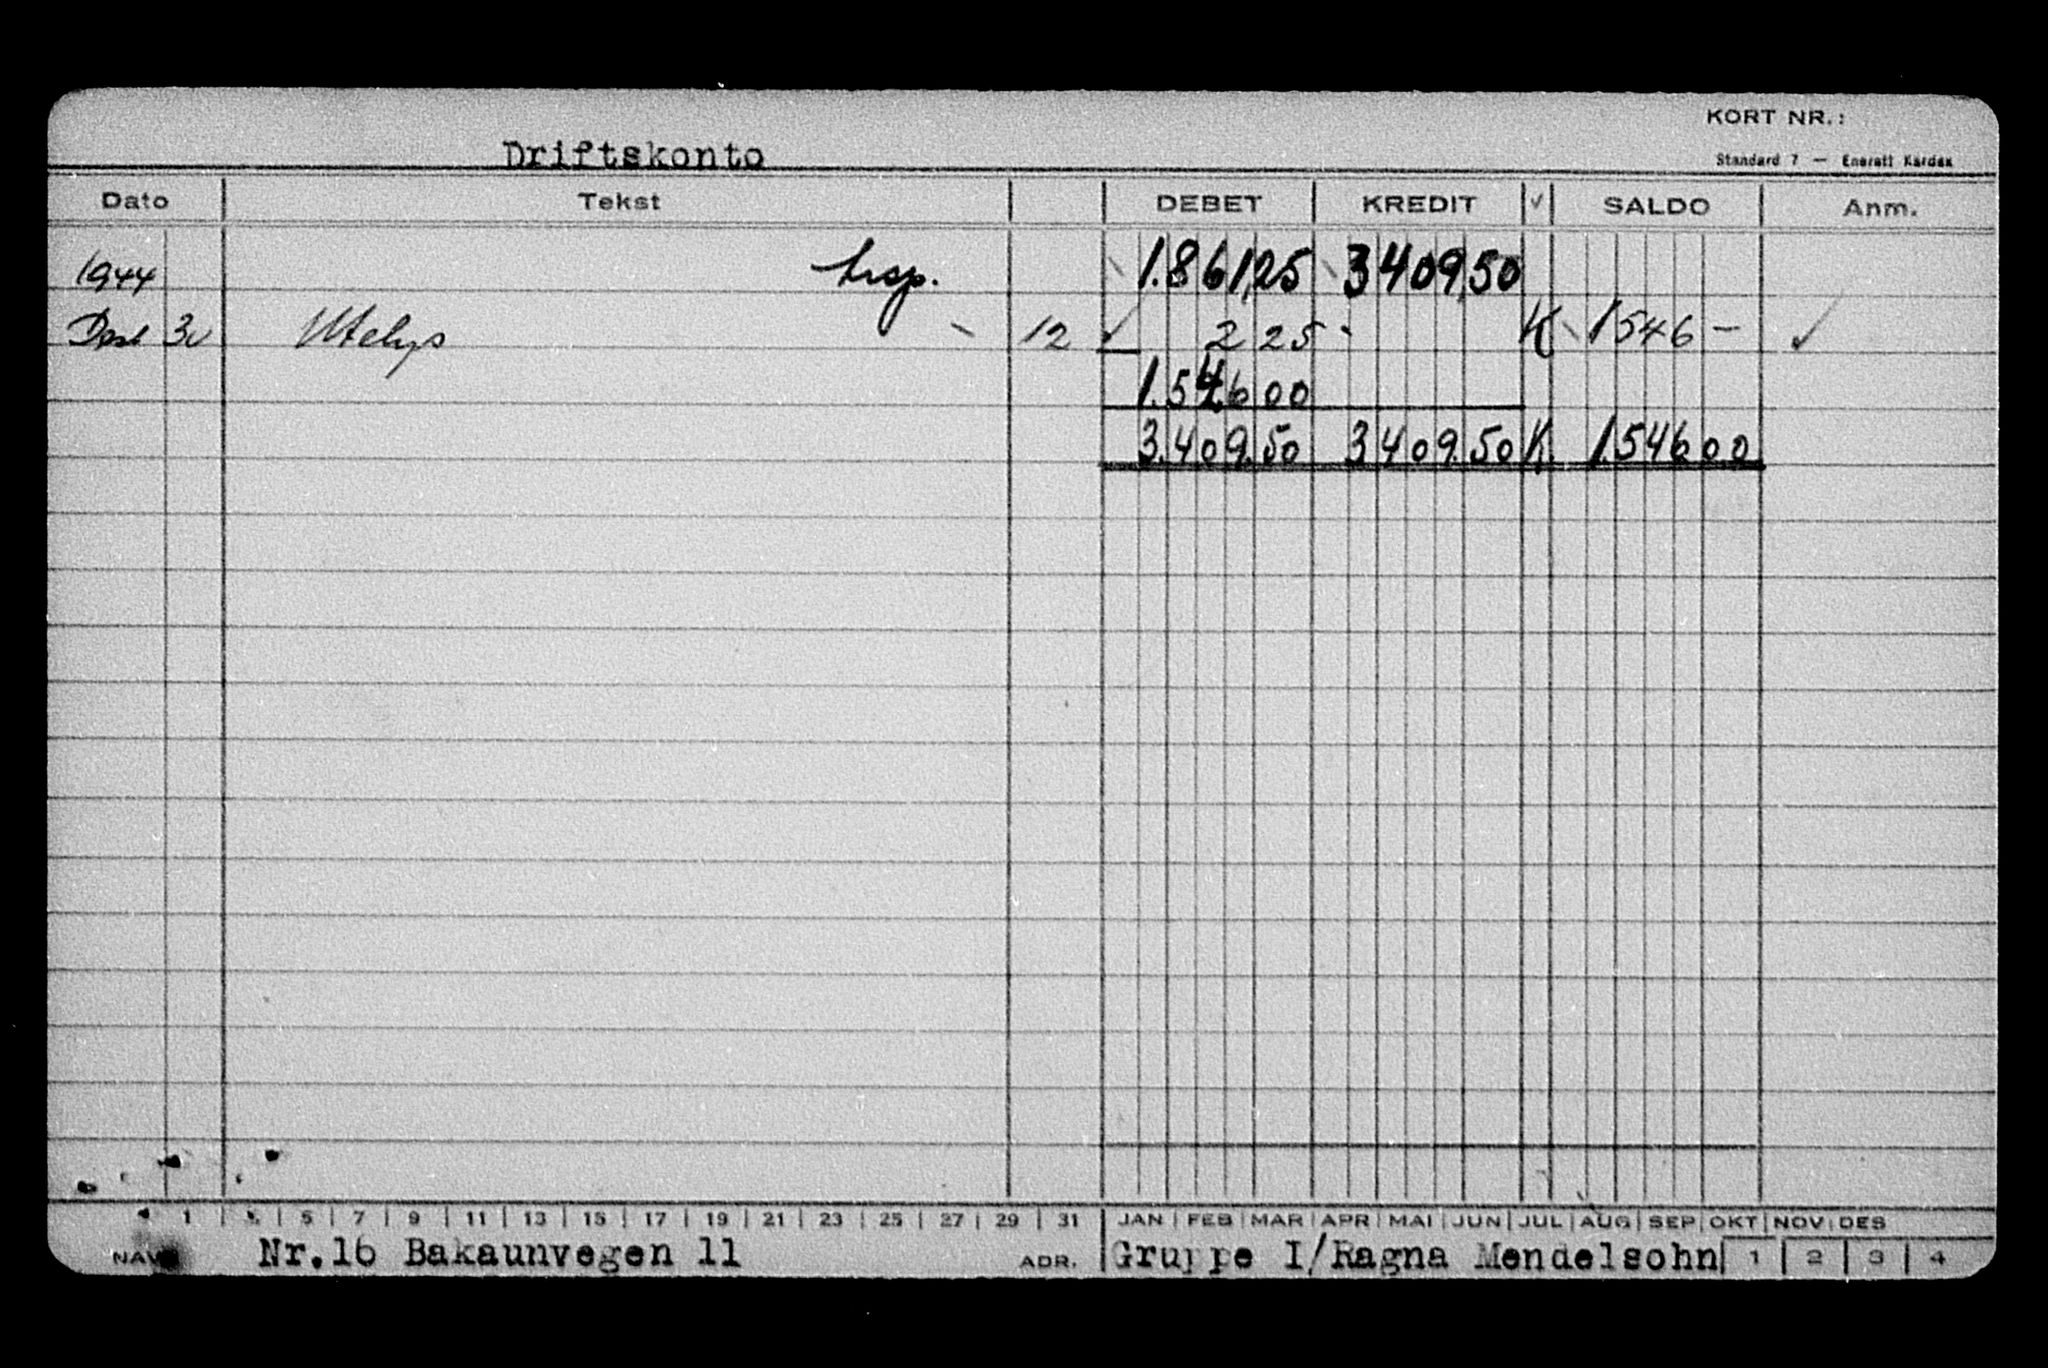 KORT NR.:
Driftskonto
Standard 7 — Eneratt Kardex
Dato Tekst DEBET KREDIT √ SALDO Anm.
1944 trsp. 1.861,25 3409,50
Des 30 Utelys 12 ✓ 2 25 K 1546 — ✓
1.546 00
3.409.50 3409.50 K 1546 00
1 5 7 9 11 13 15 17 19 21 23 25 27 29 31 JAN FEB MAR APR MAI JUN JUL AUG SEP OKT NOV DES
NAVN Nr.16 Bakaunvegen 11 ADR. Gruppe I/Ragna Mendelsohn 1 2 3 4